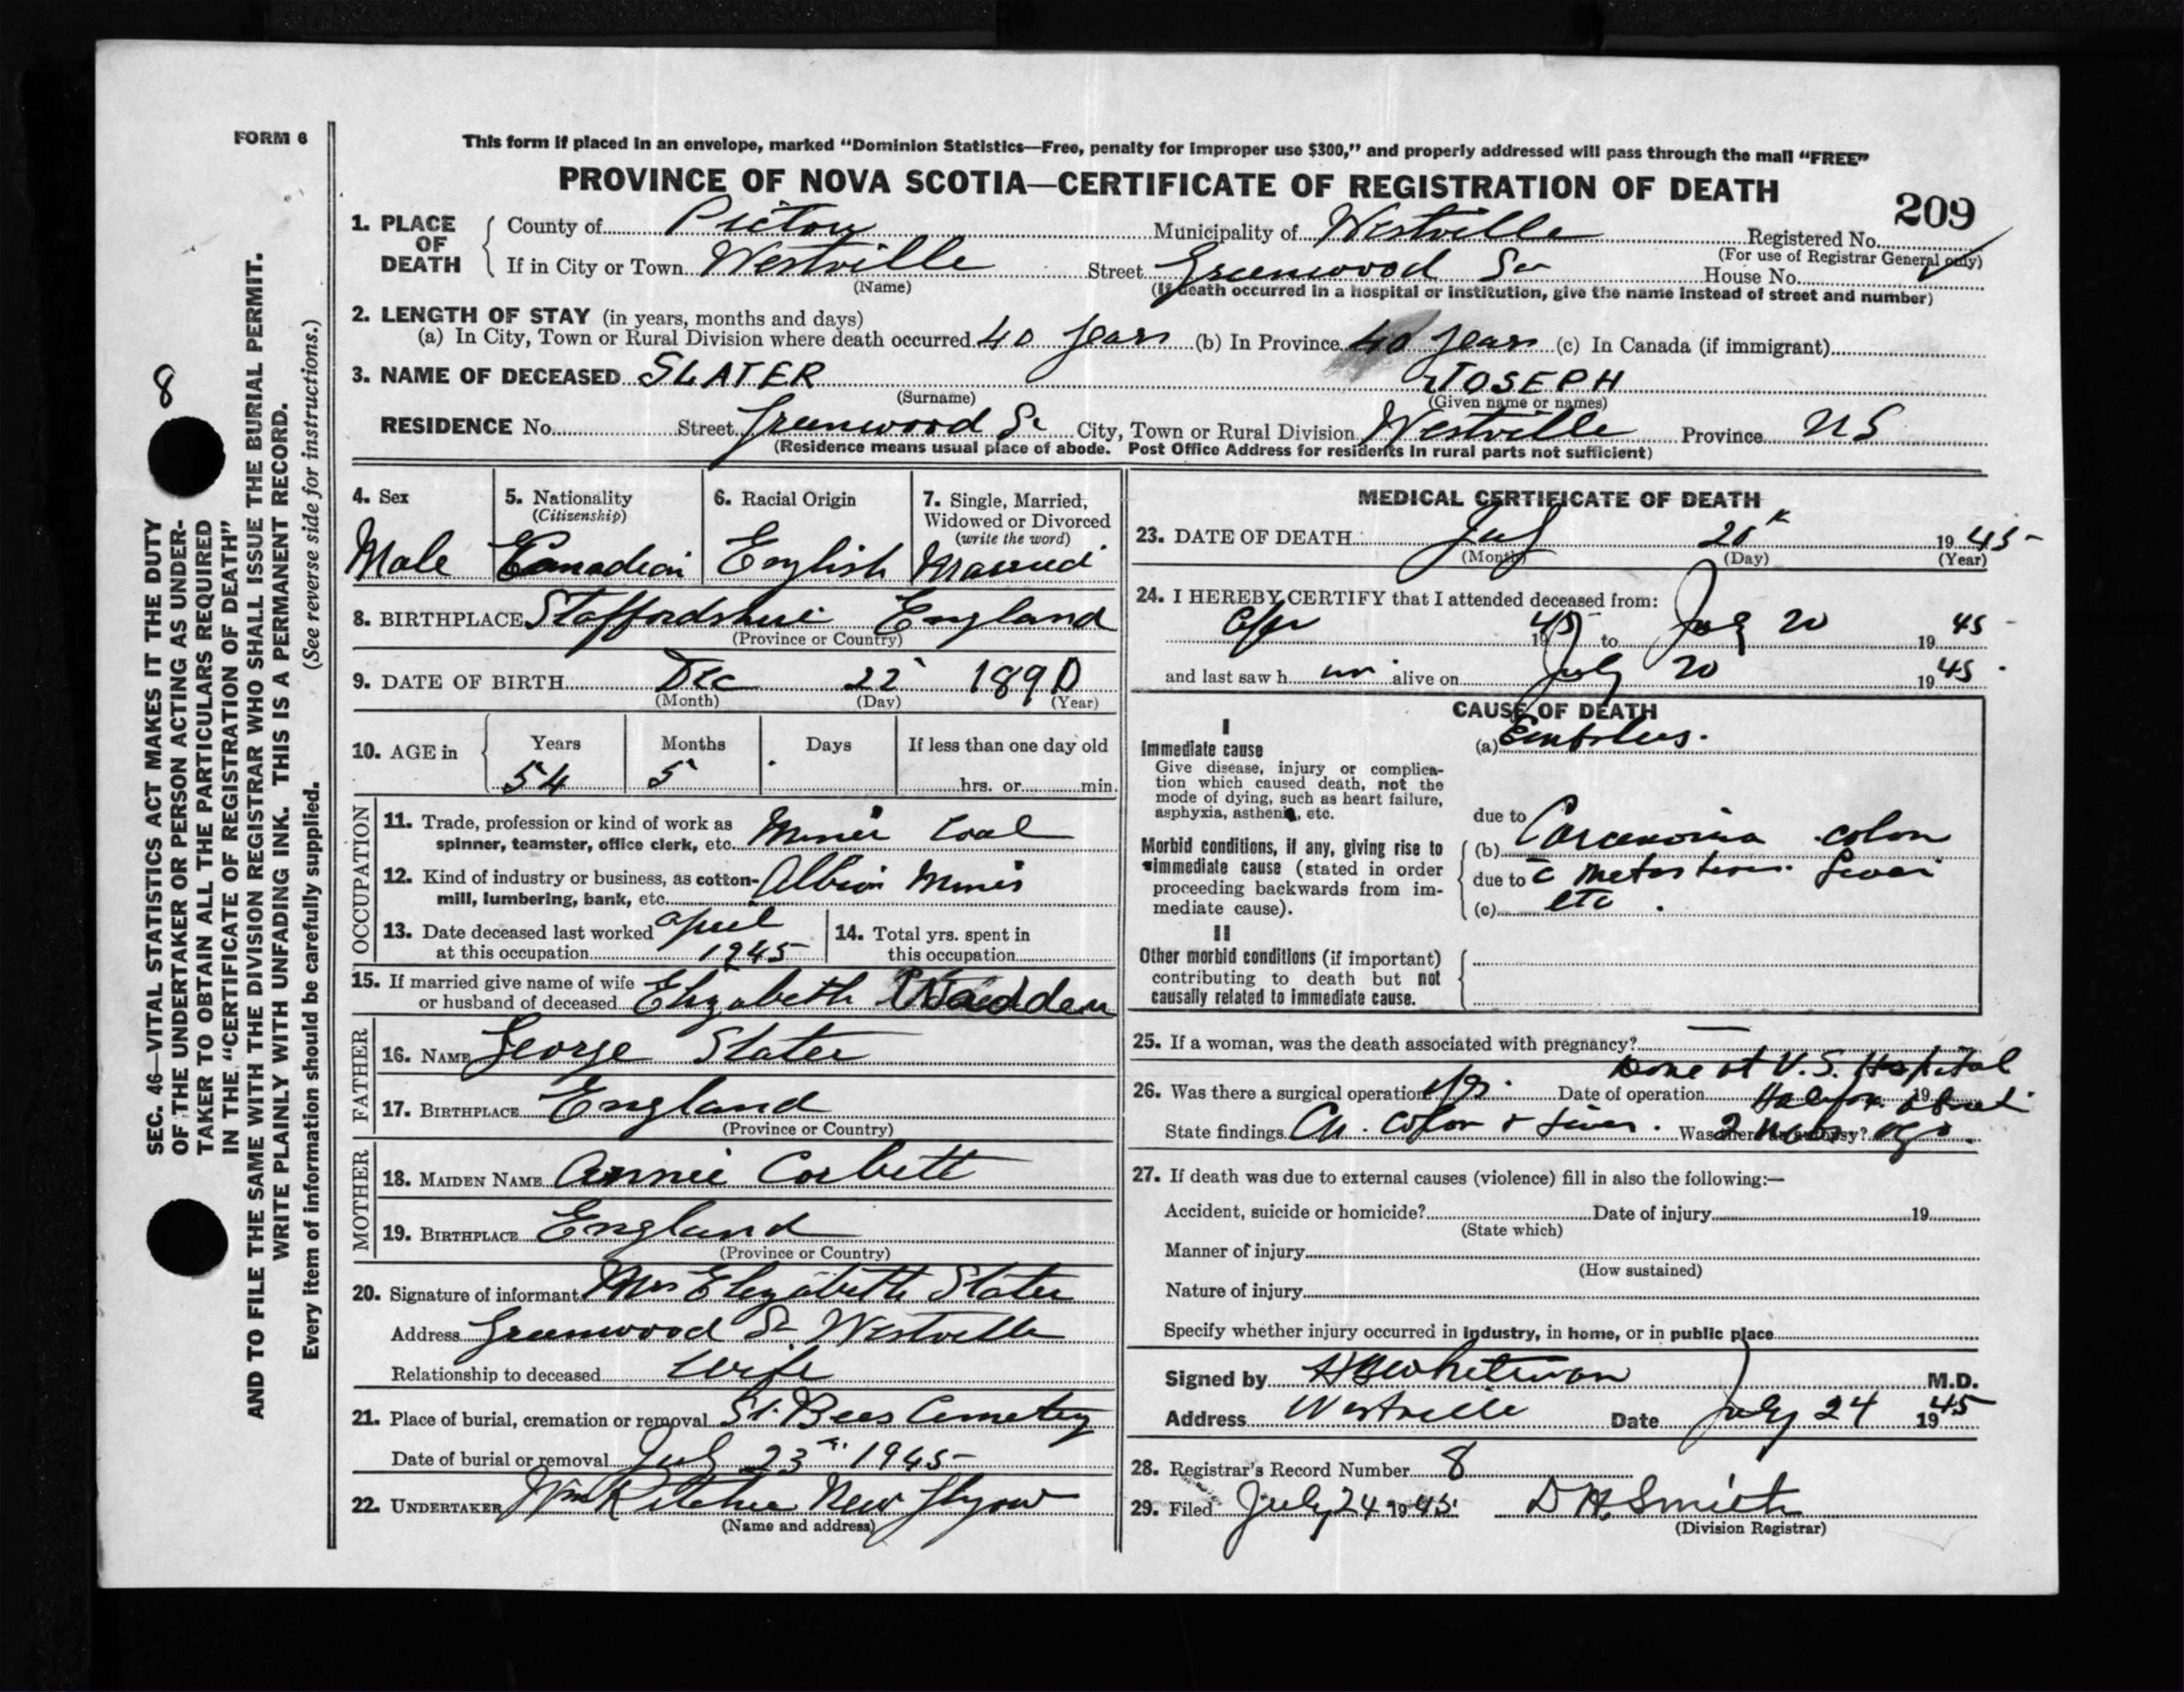 FORM 6
This form if placed in an envelope, marked “Dominion Statistics—Free, penalty for improper use $300,” and properly addressed will pass through the mail “FREE”
PROVINCE OF NOVA SCOTIA—CERTIFICATE OF REGISTRATION OF DEATH
209
1. PLACE OF DEATH
County of Pictou Municipality of Westville Registered No.
(For use of Registrar General only)
If in City or Town Westville Street Greenwood St House No.
(Name)
(If death occurred in a hospital or institution, give the name instead of street and number)
2. LENGTH OF STAY (in years, months and days)
(a) In City, Town or Rural Division where death occurred 40 years (b) In Province 40 years (c) In Canada (if immigrant)
3. NAME OF DECEASED SLATER JOSEPH
(Surname) (Given name or names)
RESIDENCE No. Street Greenwood St City, Town or Rural Division Westville Province NS
(Residence means usual place of abode. Post Office Address for residents in rural parts not sufficient)
4. Sex
Male
5. Nationality
(Citizenship)
Canadian
6. Racial Origin
English
7. Single, Married,
Widowed or Divorced
(write the word)
Married
8. BIRTHPLACE Staffordshire England
(Province or Country)
9. DATE OF BIRTH Dec 22 1890
(Month) (Day) (Year)
10. AGE in
Years Months Days If less than one day old
54 5 hrs. or min.
OCCUPATION
11. Trade, profession or kind of work as
spinner, teamster, office clerk, etc. Miner Coal
12. Kind of industry or business, as cotton-
mill, lumbering, bank, etc. Albion Mines
13. Date deceased last worked April
at this occupation 1945
14. Total yrs. spent in
this occupation
15. If married give name of wife
or husband of deceased Elizabeth Wadden
FATHER
16. NAME George Slater
17. BIRTHPLACE England
(Province or Country)
MOTHER
18. MAIDEN NAME Annie Corbett
19. BIRTHPLACE England
(Province or Country)
20. Signature of informant Mrs Elizabeth Slater
Address Greenwood St Westville
Relationship to deceased Wife
21. Place of burial, cremation or removal St. Bees Cemetery
Date of burial or removal July 23rd 1945
22. UNDERTAKER Wm Ritchie New Glasgow
(Name and address)
MEDICAL CERTIFICATE OF DEATH
23. DATE OF DEATH July 20th 1945
(Month) (Day) (Year)
24. I HEREBY CERTIFY that I attended deceased from:
1945 to July 20 1945
and last saw h im alive on July 20 1945
CAUSE OF DEATH
I
Immediate cause
Give disease, injury or complica-
tion which caused death, not the
mode of dying, such as heart failure,
asphyxia, asthenia, etc.
(a) Embolus.
Morbid conditions, if any, giving rise to
immediate cause (stated in order
proceeding backwards from im-
mediate cause).
due to
(b) Carcinoma colon
due to c metastasis liver
(c) etc.
II
Other morbid conditions (if important)
contributing to death but not
causally related to immediate cause.
25. If a woman, was the death associated with pregnancy? —
26. Was there a surgical operation yes. Date of operation 19 Done at V.S. Hospital
Halifax about
State findings Ca. colon & liver. Was there an autopsy? 2 mos ago.
27. If death was due to external causes (violence) fill in also the following:—
Accident, suicide or homicide? Date of injury 19
(State which)
Manner of injury
(How sustained)
Nature of injury
Specify whether injury occurred in industry, in home, or in public place
Signed by Whitman M.D.
Address Westville Date July 24 1945
28. Registrar's Record Number 8
29. Filed July 24 1945 D H Smith
(Division Registrar)
8
SEC. 46—VITAL STATISTICS ACT MAKES IT THE DUTY
OF THE UNDERTAKER OR PERSON ACTING AS UNDER-
TAKER TO OBTAIN ALL THE PARTICULARS REQUIRED
IN THE “CERTIFICATE OF REGISTRATION OF DEATH”
AND TO FILE THE SAME WITH THE DIVISION REGISTRAR WHO SHALL ISSUE THE BURIAL PERMIT.
WRITE PLAINLY WITH UNFADING INK. THIS IS A PERMANENT RECORD.
Every item of information should be carefully supplied. (See reverse side for instructions.)